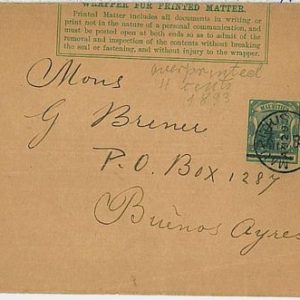 WRAPPER FOR PRINTED MATTER.
Printed Matter includes all documents in writing or
print not in the nature of a personal communication, and
must be posted open at both ends so as to admit of the
removal and inspection of the contents without breaking
the seal or fastening, and without injury to the wrapper.
overprinted
4 cents
Mons
G Brener
P.O. Box 1287
Buenos Ayres
MAURITIUS